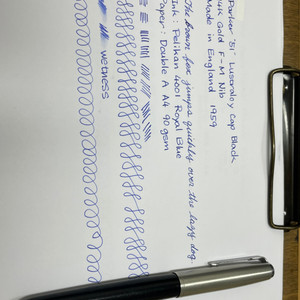 Parker '51' Lustraloy Cap Black
14K Gold F-M Nib
Made in England 1959
The brown fox jumps quickly over the lazy dog
Ink : Pelikan 4001 Royal Blue
Paper : Double A A4 90 gsm
wetness